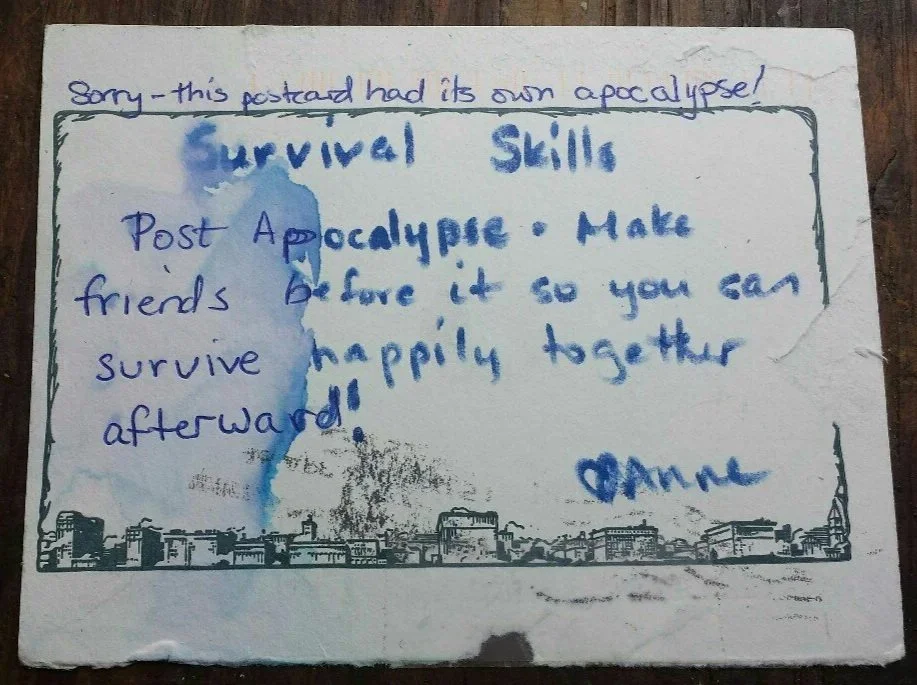 Sorry - this postcard had its own apocalypse!
Survival Skills
Post Appocalypse. Make
friends before it so you can
survive happily together
afterward!
♥Anne